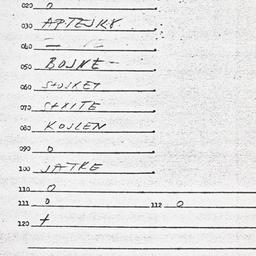 020 0
030 APTEJKY
040 — —
050 BOJNE -
060
070
080 KOJLEN
090 0
100 JATKE
110 0
111 0 112 0
120 +